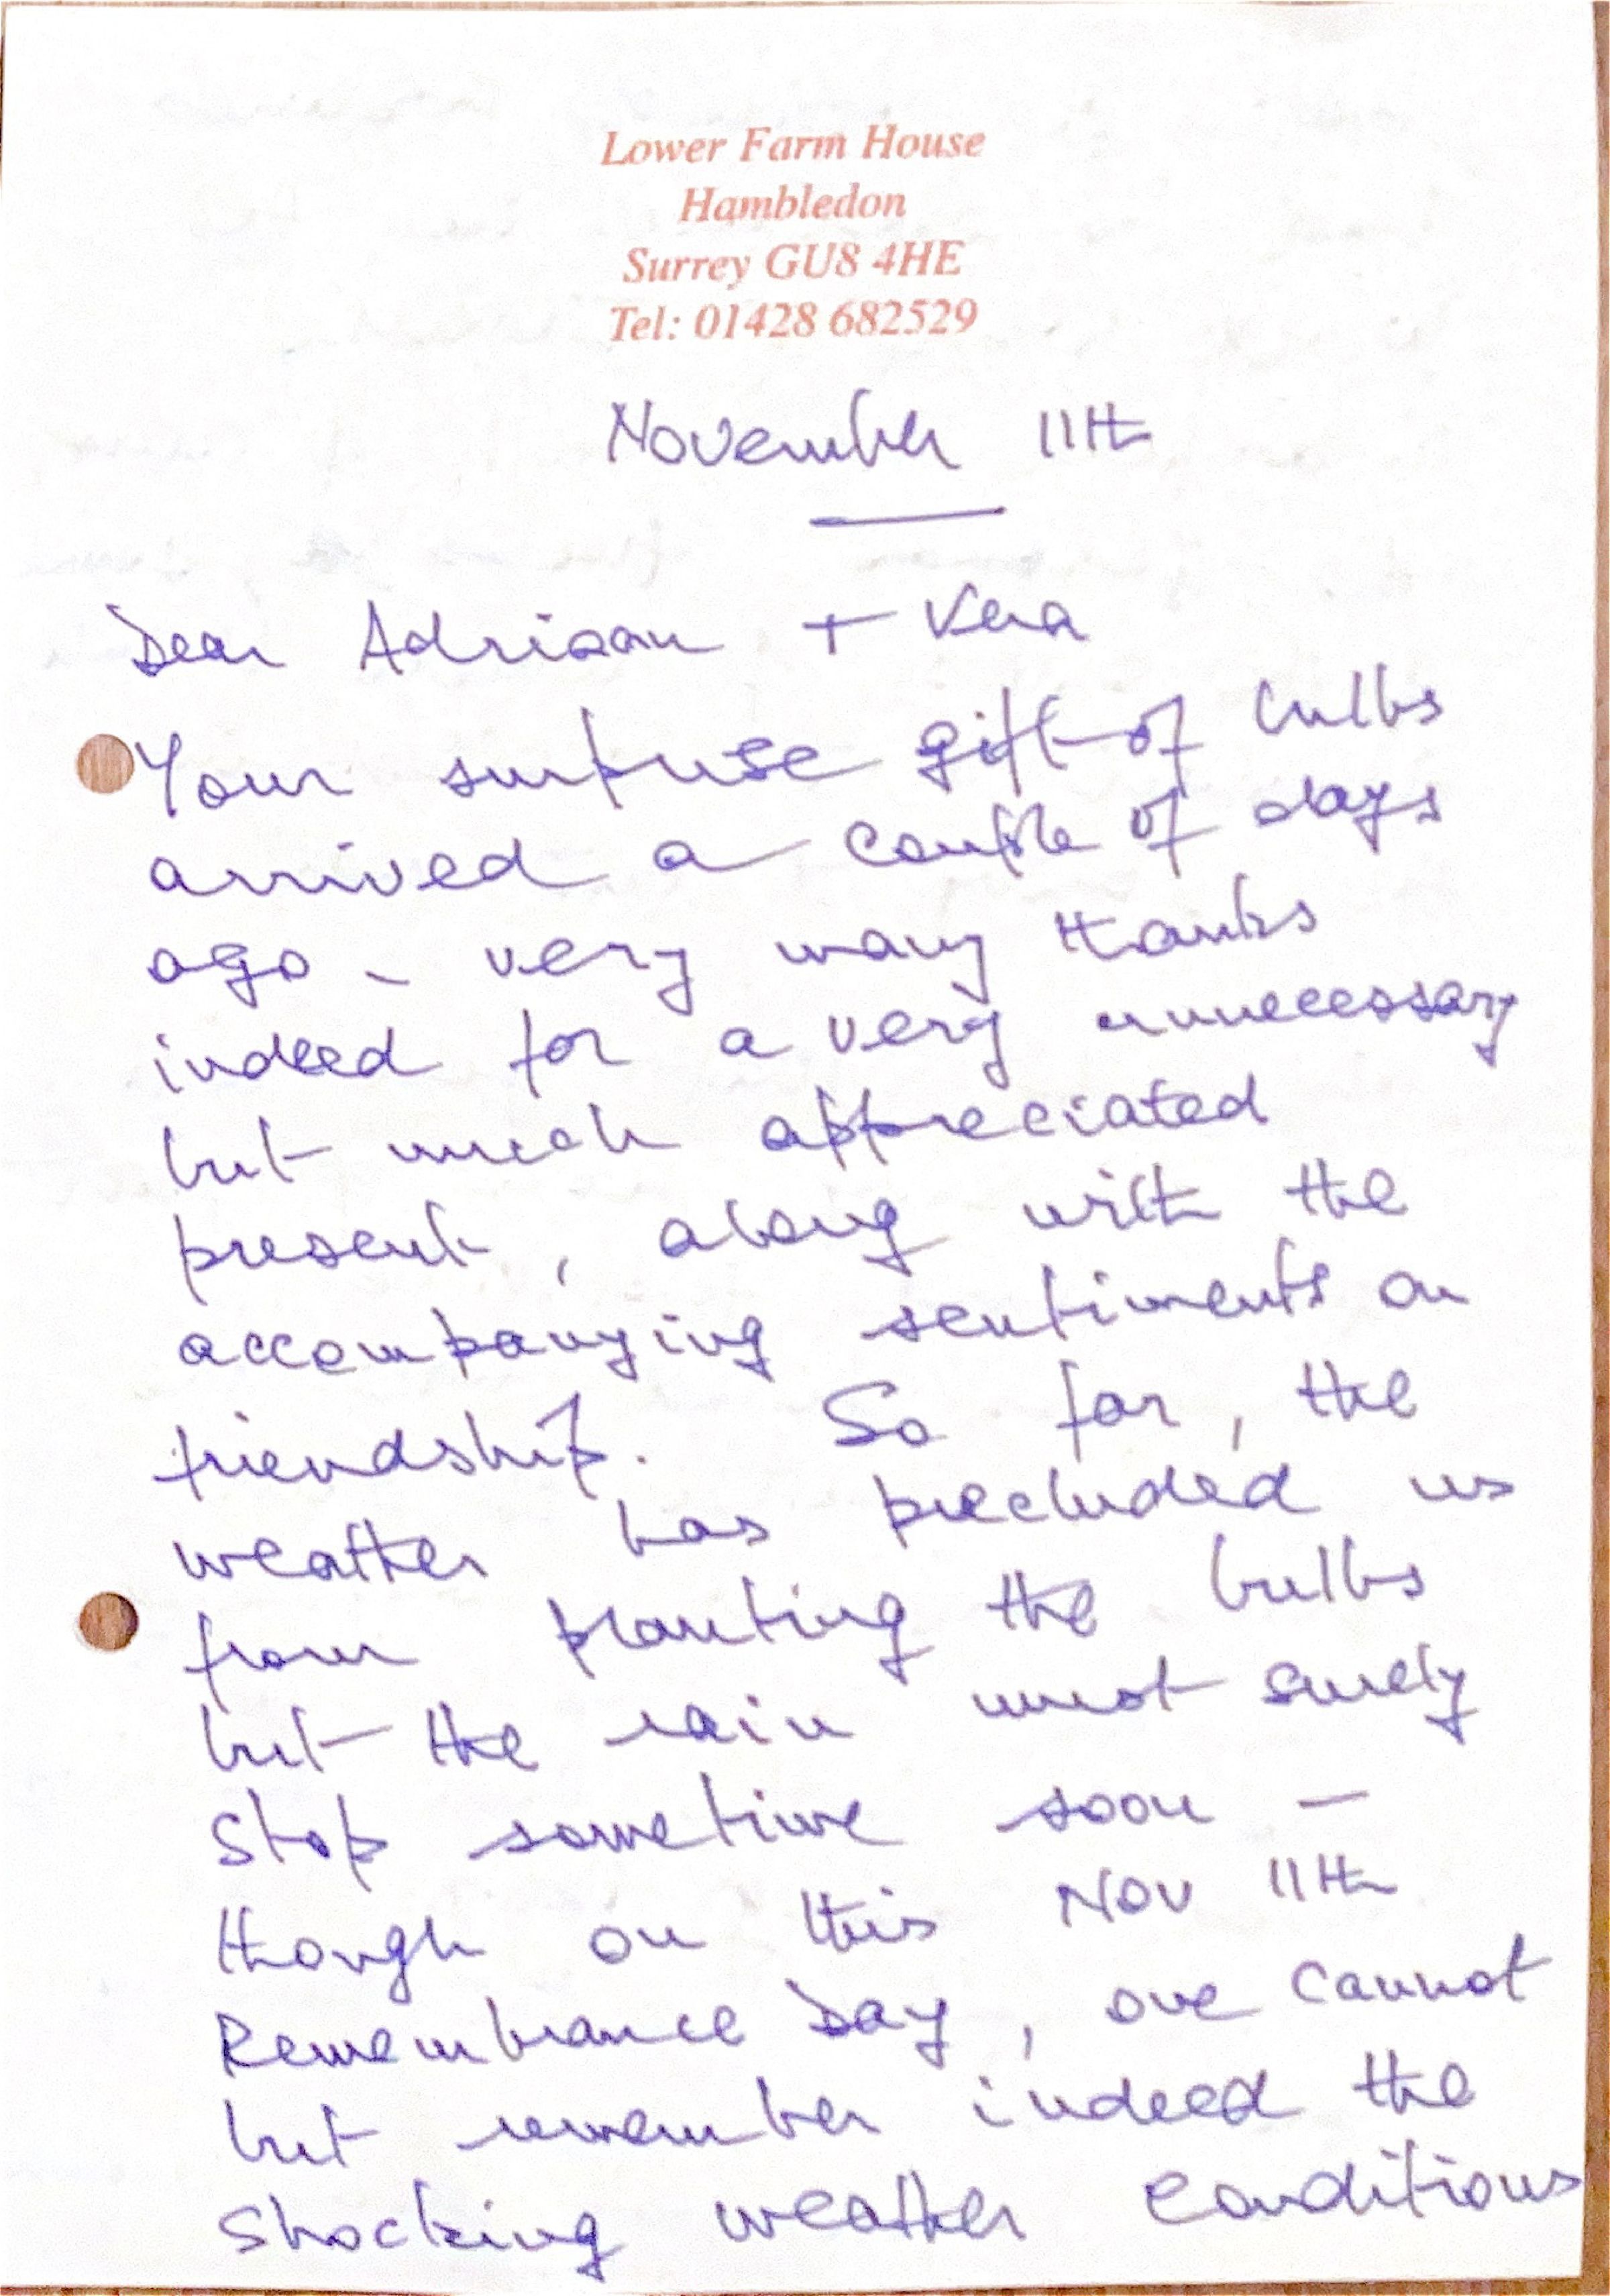 Lower Farm House
Hambledon
Surrey GU8 4HE
Tel: 01428 682529
November 11th
Dear Adriaan + Vera
Your surprise gift of bulbs
arrived a couple of days
ago - very many thanks
indeed for a very unnecessary
but much appreciated
present, along with the
accompanying sentiments on
friendship. So far, the
weather has precluded us
from planting the bulbs
but the rain must surely
stop sometime soon -
though on this Nov 11th
Remembrance Day, one cannot
but remember indeed the
shocking weather conditions